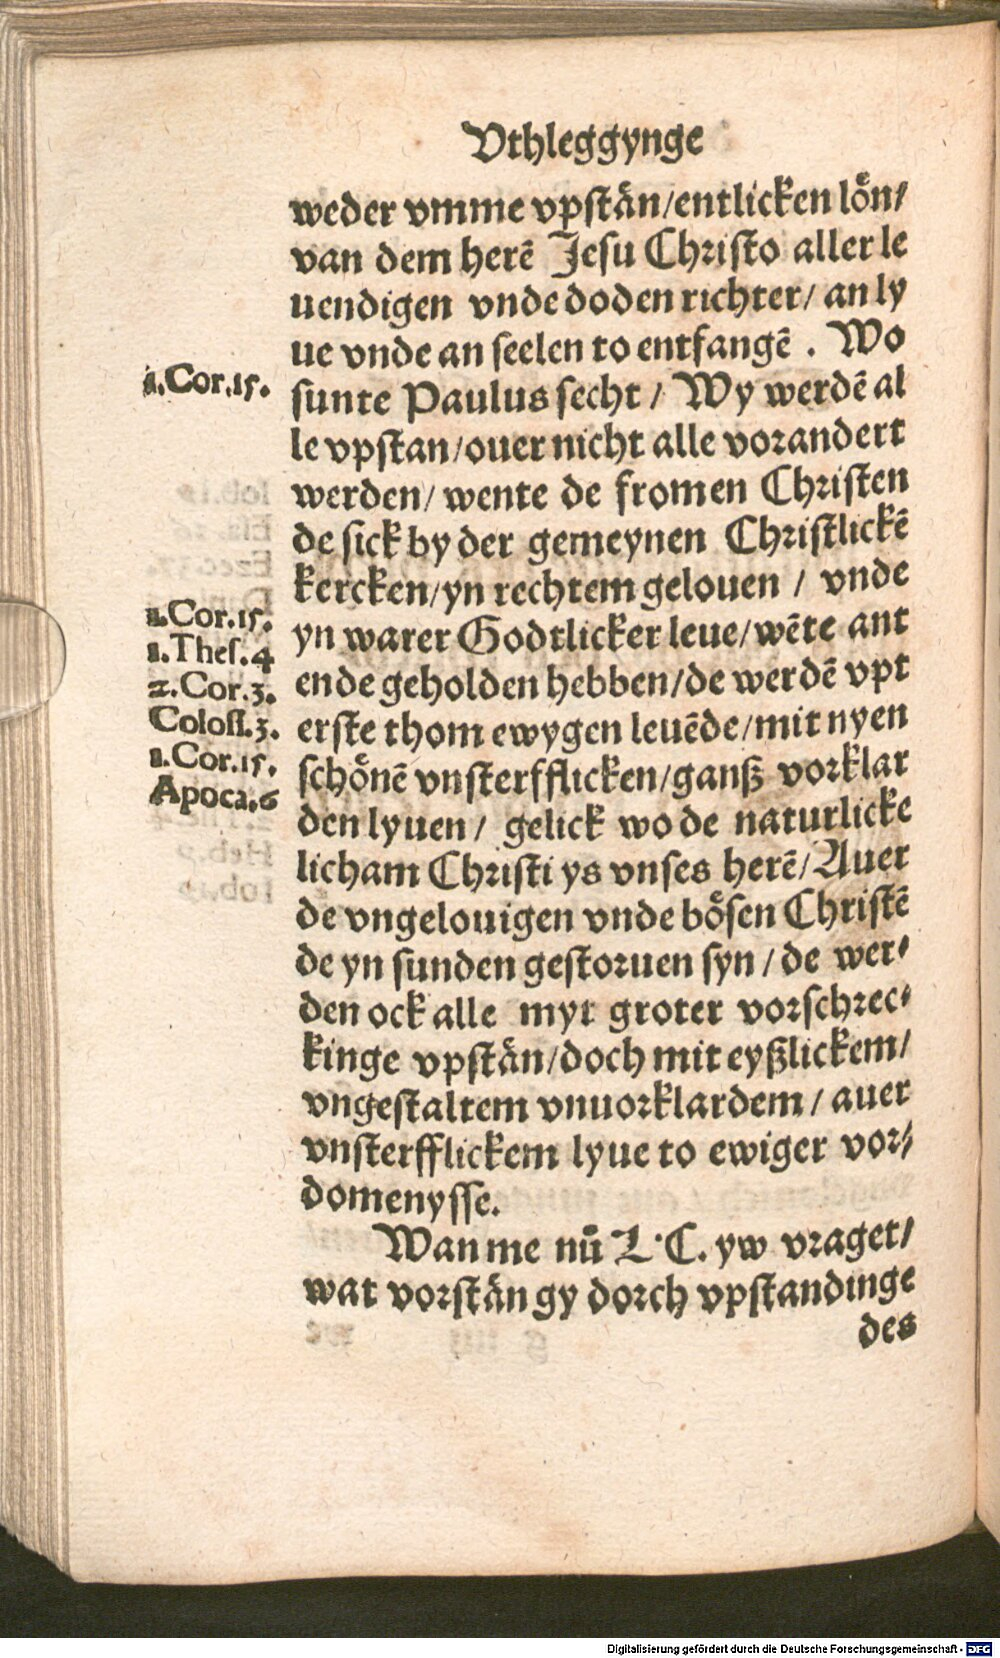 Vthleggynge
weder vmme vpstän/entlicken lön/
van dem herē Jesu Christo aller le
uendigen vnde doden richter/ an ly
ue vnde an seelen to entfangē . Wo
1.Cor.15.
sunte Paulus secht / Wy werdē al
le vpstan/ouer nicht alle vorandert
werden/ wente de fromen Christen
de sick by der gemeynen Christlickē
kercken/yn rechtem gelouen / vnde
1.Cor.15.
yn warer Godtlicker leue/wēte ant
1.Thes.4
ende geholden hebben/de werdē vpt
2.Cor.3.
erste thom ewygen leuēde/mit nyen
Coloss.3.
schönē vnsterfflicken/ganß vorklar
1.Cor.15.
den lyuen/ gelick wo de naturlicke
Apoca.6
licham Christi ys vnses herē/Auer
de vngelouigen vnde bösen Christē
de yn sunden gestoruen syn / de wer⸗
den ock alle myt groter vorschrec⸗
kinge vpstän/doch mit eyßlickem/
vngestaltem vnuorklardem / auer
vnsterfflickem lyue to ewiger vor⸗
domenysse.
Wan me nů L.C. yw vraget/
wat vorstän gy dorch vpstandinge
des
Digitalisierung gefördert durch die Deutsche Forschungsgemeinschaft - DFG